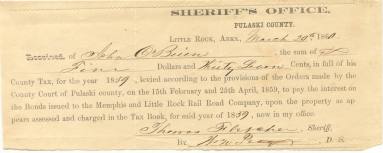 SHERIFF'S OFFICE,
PULASKI COUNTY.
LITTLE ROCK, ARKS. March 20th 1860.
Received, of John O'Brien the sum of
Five Dollars and Thirty Seven Cents, in full of his
County Tax, for the year 1859, levied according to the provisions of the Orders made by the
County Court of Pulaski county, on the 15th February and 25th April, 1859, to pay the interest on
the Bonds issued to the Memphis and Little Rock Rail Road Company, upon the property as ap
pears assessed and charged in the Tax Book, for said year of 1859, now in my office.
Thomas Fletcher Sheriff,
By D. S.